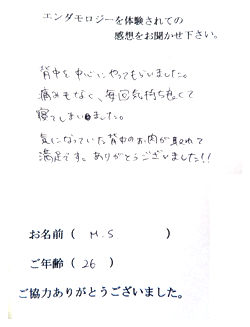 エンダモロジーを体験されての
感想をお聞かせ下さい。
背中を中心にやってもらいました。
痛みもなく、毎回気持ち良くて
寝てしまいました。
気になっていた背中のお肉が取れて
満足です。ありがとうございました!!
お名前( M.S )
ご年齢( 26 )
ご協力ありがとうございました。